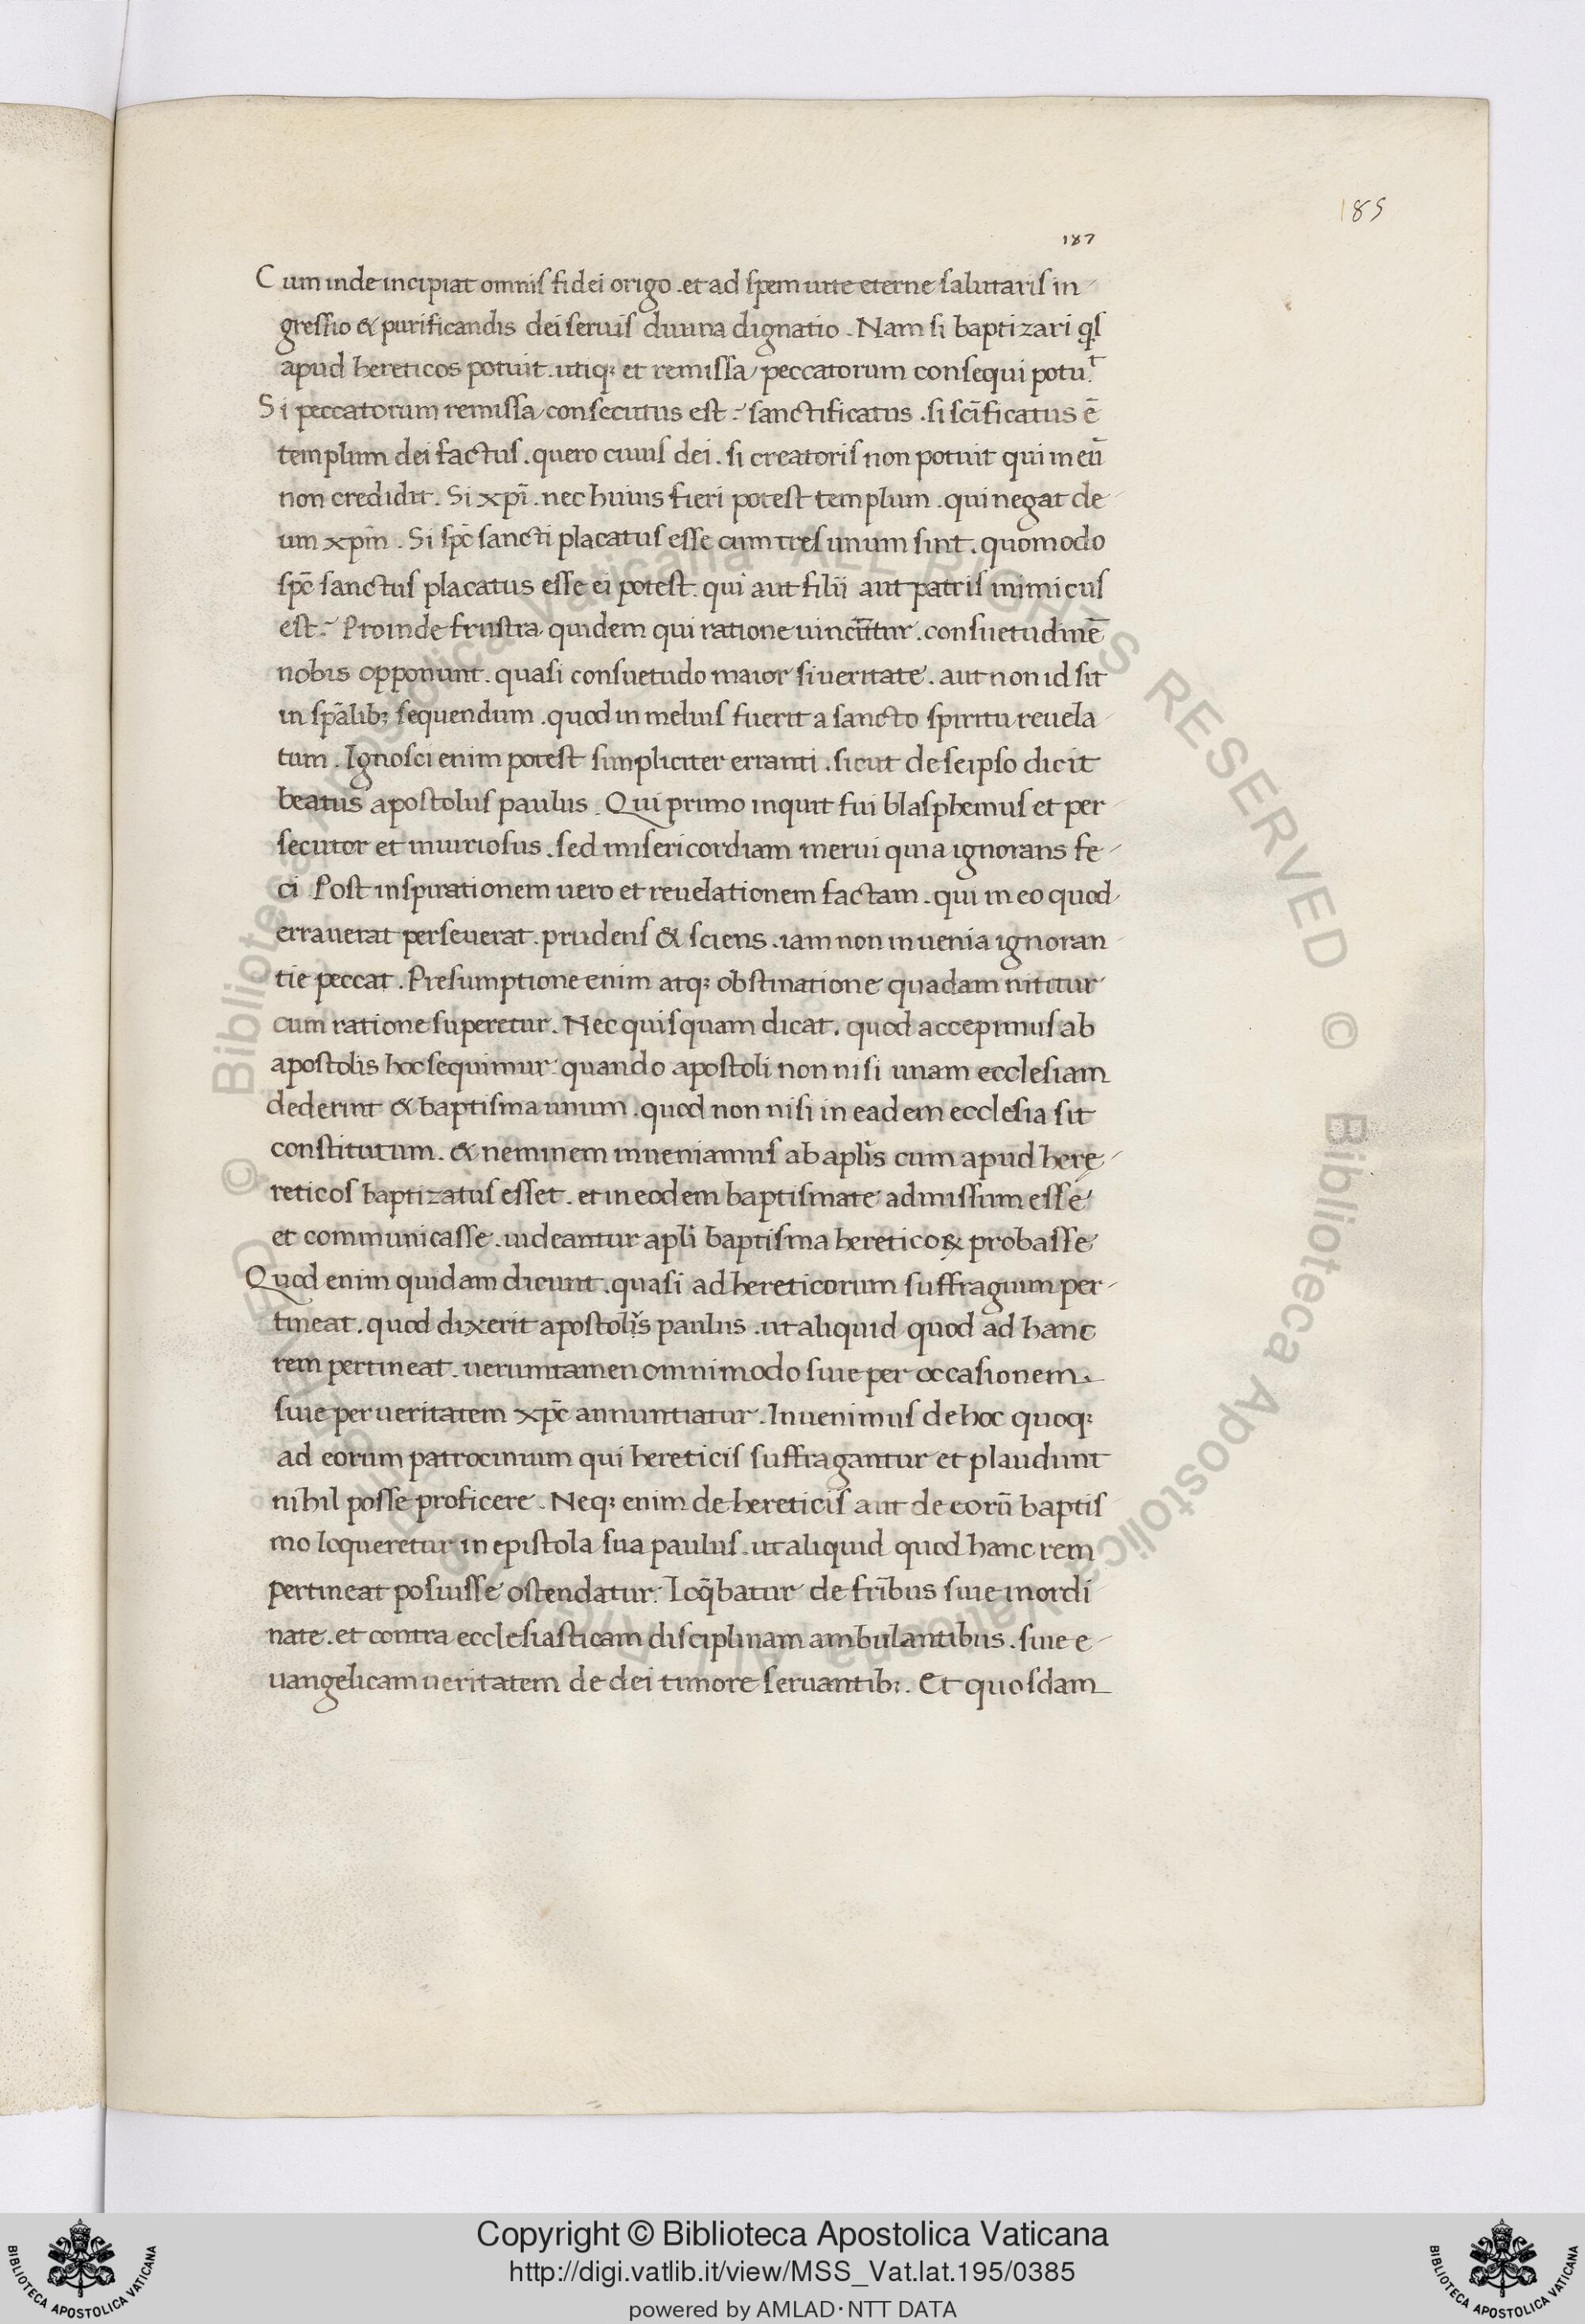 185
187
Cum inde incipiat omnis fidei origo . et ad spem uite eterne salutaris in-
gressio & purificandis dei seruis diuina dignatio . Nam si baptizari qs
apud hereticos potuit . utiq; et remissa peccatorum consequi potuit
Si peccatorum remissa consecutus est : sanctificatus . si scificatus ē
templum dei factus . quero cuius dei . si creatoris non potuit qui in eū
non credidit . Si xpi . nec huius fieri potest templum . qui negat de-
um xpm . Si spc sancti placatus esse cum tres unum sint . quomodo
spc sanctus placatus esse ei potest . qui aut filii aut patris inimicus
est : Proinde frustra quidem qui ratione uincuntur . consuetudinē
nobis opponunt . quasi consuetudo maior si ueritate . aut non id sit
in spālib; sequendum . quod in melius fuerit a sancto spiritu reuela-
tum . Ignosci enim potest simpliciter erranti . sicut de seipso dicit
beatus apostolus paulus . Qui primo inquit fui blasphemus et per-
secutor et iniuriosus . sed misericordiam merui quia ignorans fe-
ci Post inspirationem uero et reuelationem factam . qui in eo quod
errauerat perseuerat . prudens & sciens . iam non in uenia ignoran-
tie peccat . Presumptione enim atq; obstinatione quadam nititur
cum ratione superetur . Nec quisquam dicat . quod accepimus ab
apostolis hoc sequimur . quando apostoli non nisi unam ecclesiam
dederint & baptisma unum . quod non nisi in eadem ecclesia sit
constitutum . & neminem inueniamus ab aplis cum apud here-
reticos baptizatus esset . et in eodem baptismate admissum esse
et communicasse . uideantur apli baptisma hereticoꝝ probasse
Quod enim quidam dicunt . quasi ad hereticorum suffragium per-
tineat . quod dixerit apostolis paulus . ut aliquid quod ad hanc
rem pertineat . uerumtamen omnimodo siue per occasionem .
siue per ueritatem xpc annuntiatur . Inuenimus de hoc quoq;
ad eorum patrocinium qui hereticis suffragantur et plaudunt
nihil posse proficere . Neq; enim de hereticis aut de eorū baptis
mo loqueretur in epistola sua paulus . ut aliquid quod hanc rem
pertineat posuisse ostendatur . Loq̄batur de fribus siue inordi
nate . et contra ecclesiasticam disciplinam ambulantibus . siue e-
uangelicam ueritatem de dei timore seruantib; . Et quosdam
© Biblioteca Apostolica Vaticana ALL RIGHTS RESERVED
Copyright © Biblioteca Apostolica Vaticana
http://digi.vatlib.it/view/MSS_Vat.lat.195/0385
powered by AMLAD·NTT DATA
BIBLIOTECA APOSTOLICA VATICANA
BIBLIOTECA APOSTOLICA VATICANA